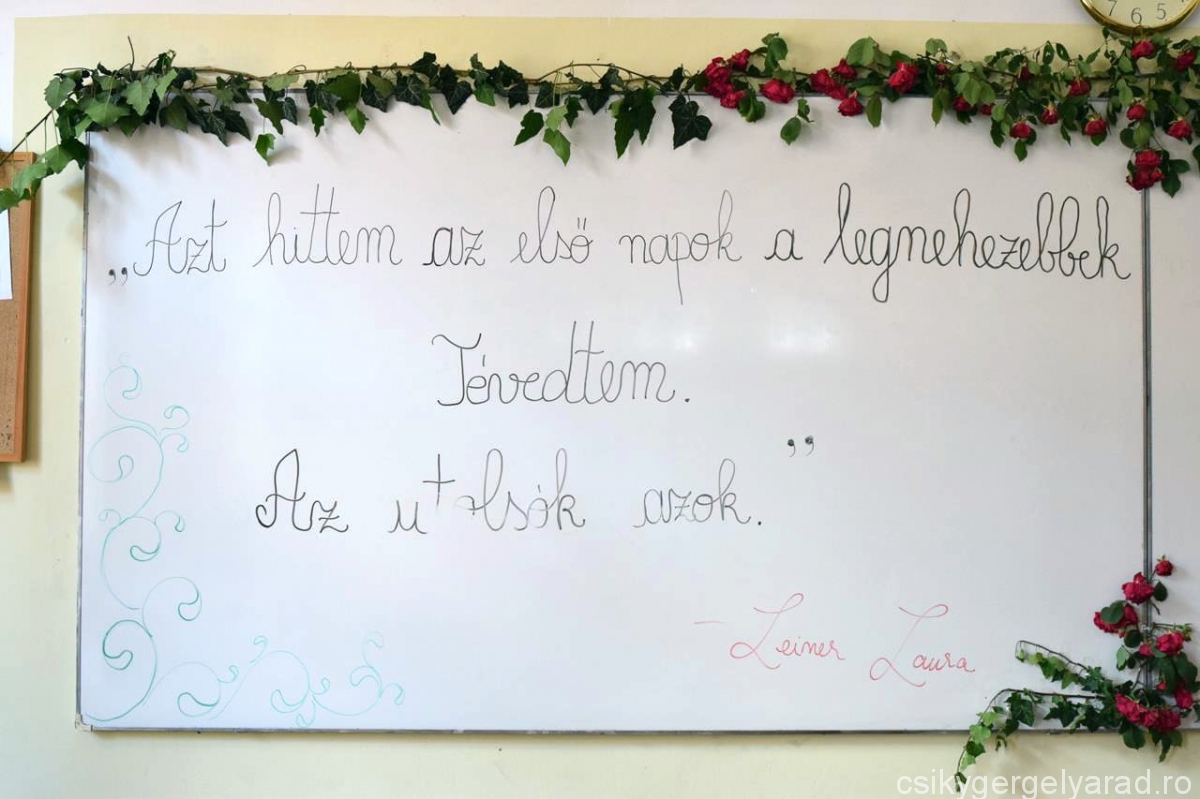 7 6 5
„Azt hittem az első napok a legnehezebbek
Tévedtem.
Az utolsók azok.”
- Leiner Laura
csikygergelyarad.ro